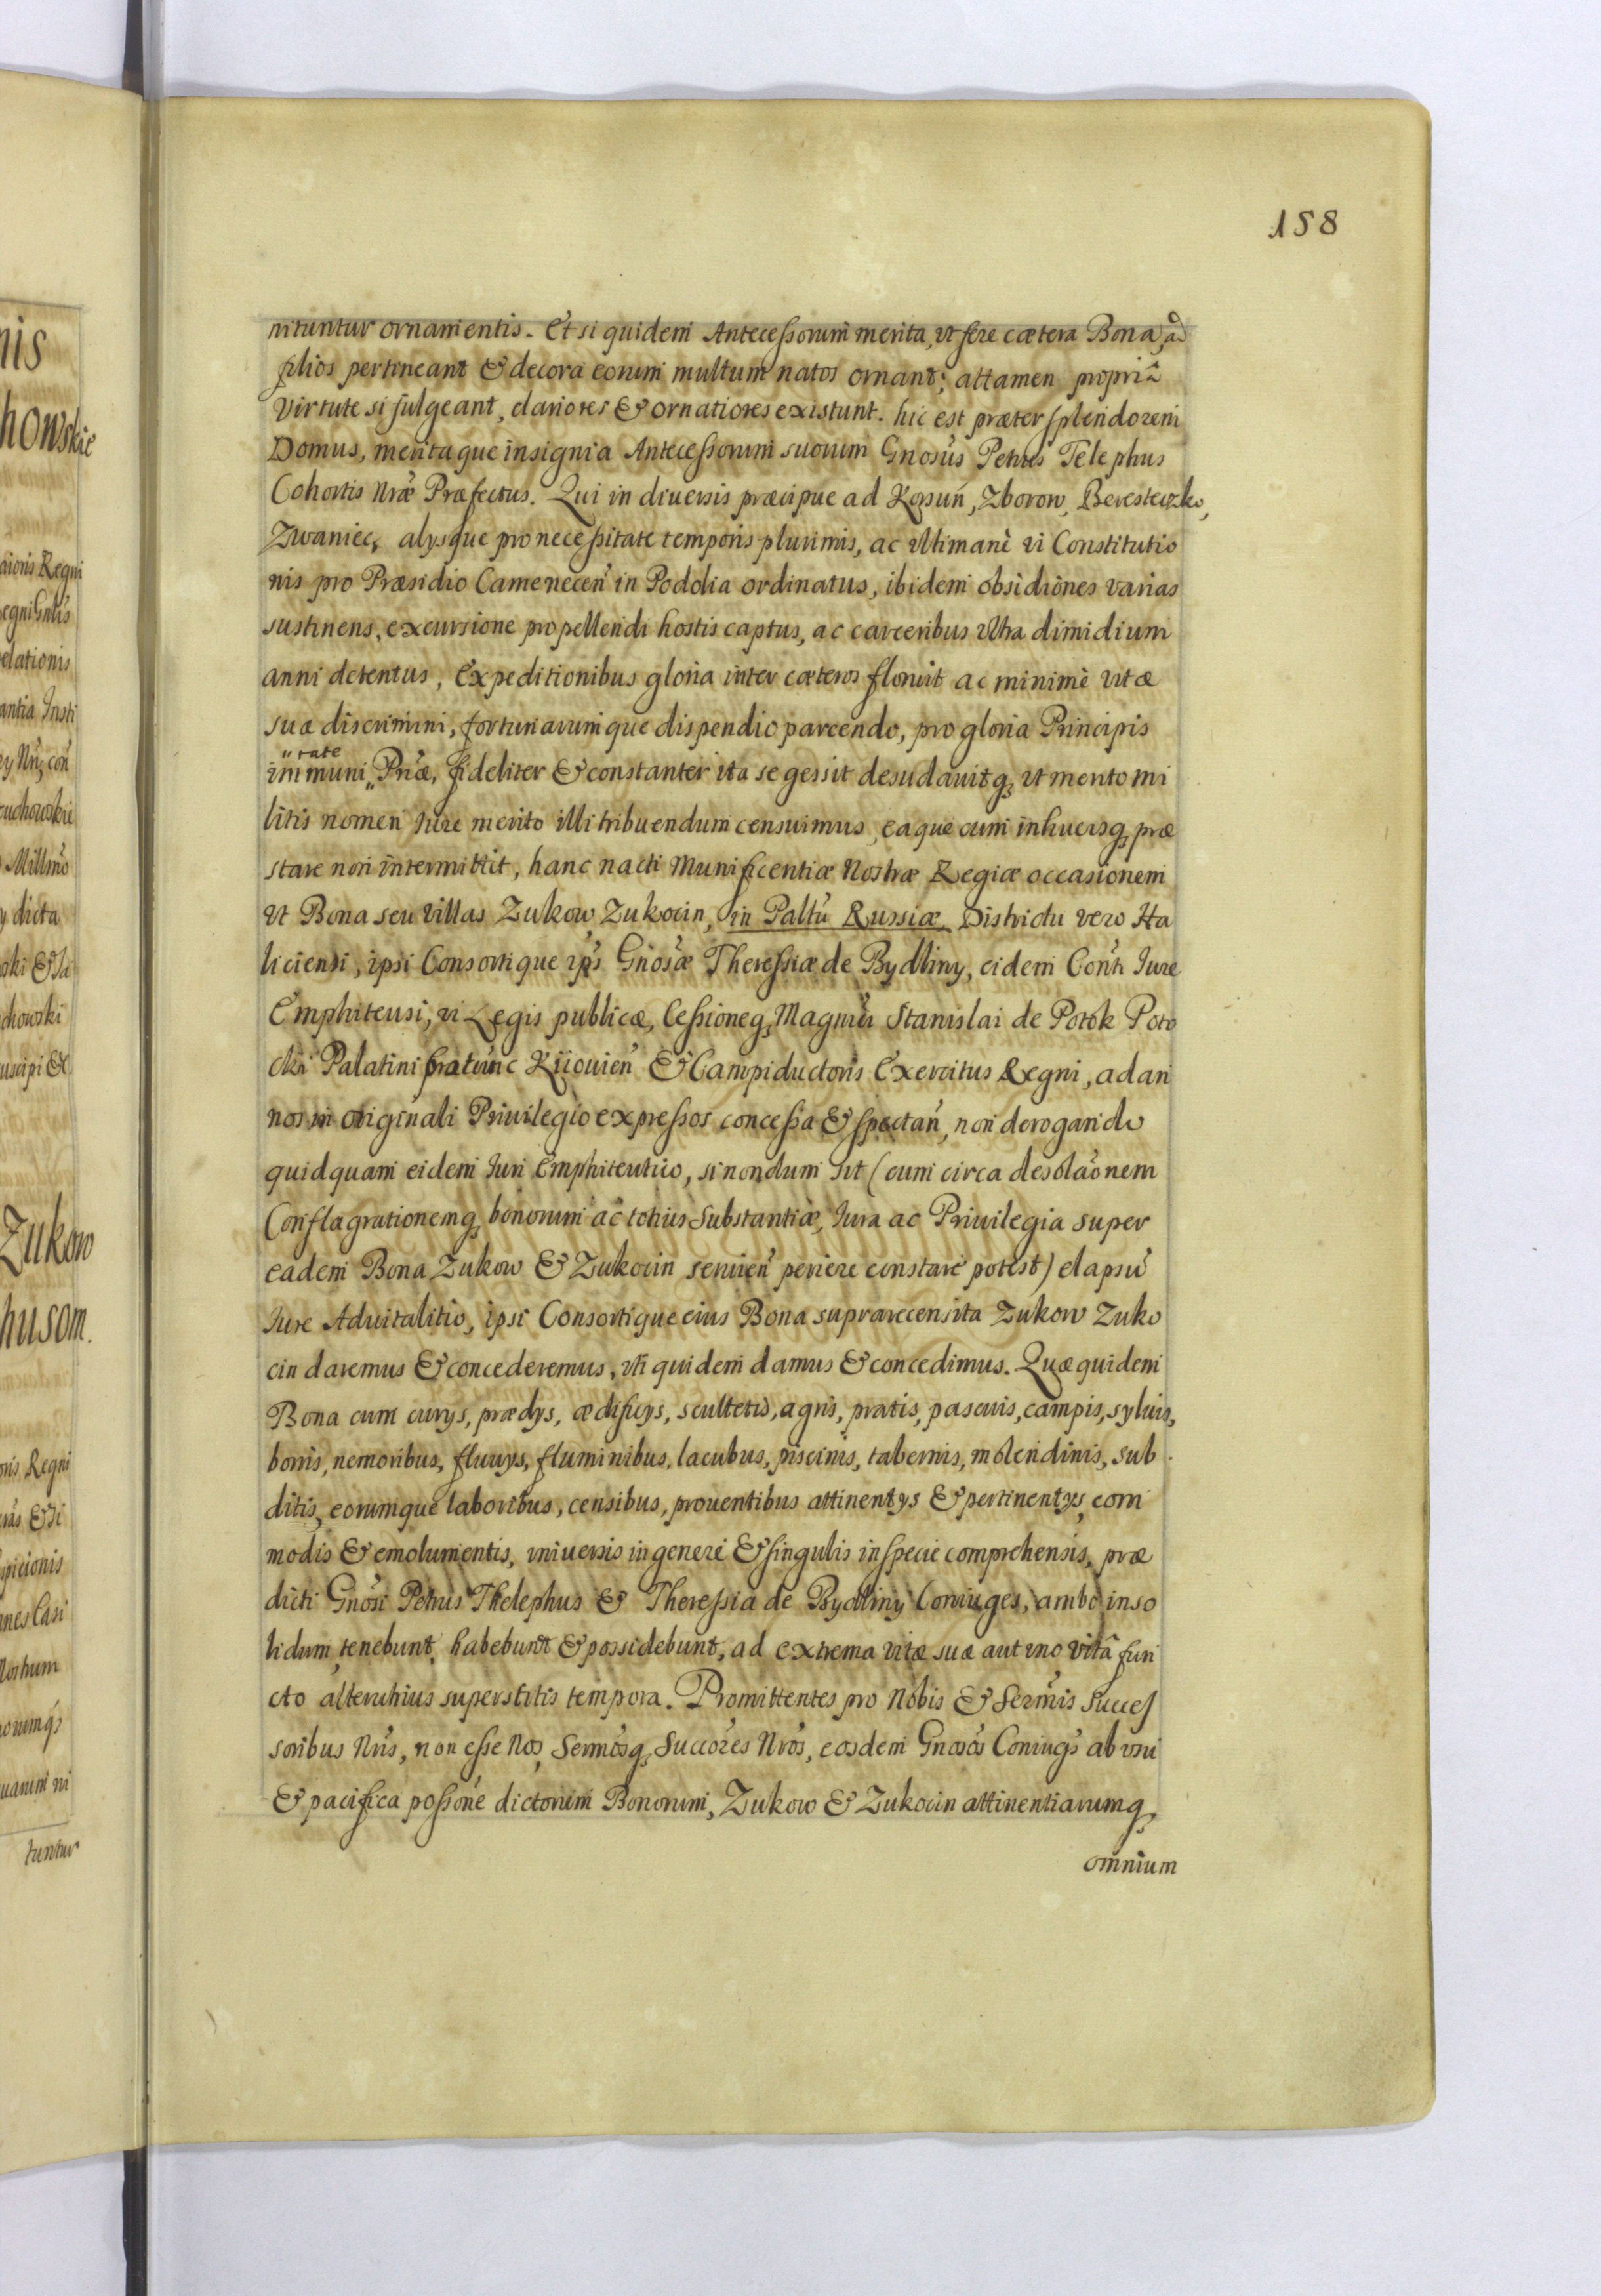 158
nituntur ornamentis. Et si quidem Antecessorum merita, vt fere cætera Bona, ad
filios pertineant & decora eorum multum natos ornant; attamen propriâ
Virtute si fulgeant, clariores & ornatiores existunt. hic est præter splendorem
Domus, meritaque insignia Antecessorum suorum Gnosus Petrus Telephus
Cohortis Nræ Præfectus. Qui in diuersis præcipue ad Korsuń, Zborow, Beresteczko,
Zwaniec, alysque pro necessitate temporis plurimis, ac vltimanè vi Constitutio
nis pro Præsidio Camenecen in Podolia ordinatus, ibidem obsidiones varias
sustinens, excursione propellendi hostis captus, ac carceribus vltra dimidium
anni detentus, Expeditionibus gloria inter cæteros floruit ac minimè vitæ
suæ discrimini, fortunarumque dispendio parcendo, pro gloria Principis
immuni "tate Priæ, fideliter & constanter ita se gessit desudauitq, vt merito mi
litis nomen Iure merito illi tribuendum censuimus, eaque cum inhucusq præ
stare non intermittit, hanc nacti Munificentiæ Nostræ Regiæ occasionem
vt Bona seu villas Zukow Zukocin, in Paltu Russiæ, Districtu vero Ha
liciensi, ipsi Consortique ips Gnosæ Theressiæ de Bydliny, eidem Conti Iure
Emphiteusi, vi Legis publicæ, Cessioneq, Magnifi Stanislai de Potok Poto
cki Palatini pratunc Kiiouien & Campiductoris Exercitus Regni, ad an
nos in originali Priuilegio expressos concessa & spectan, non derogando
quidquam eidem Iuri Emphiteutico, si nondum sit (cum circa desolaonem
Conflagrationemq bonorum ac totius Substantiæ, Iura ac Priuilegia super
eadem Bona Zukow & Zukocin seruien periere constare potest) elapsu
Iure Aduitalitio, ipsi Consortique eius Bona suprarecensita Zukow Zuko
cin daremus & concederemus, vti quidem damus & concedimus. Quæ quidem
Bona cum curys, prædys, ædificys, scultetis, agris, pratis, pascuis, campis, syluis,
boris, nemoribus, fluuys, fluminibus, lacubus, piscinis, tabernis, molendinis, sub
ditis, eorumque laboribus, censibus, prouentibus attinentys & pertinentys, com
modis & emolumentis, vniuersis in genere & singulis in specie comprehensis, præ
dicti Gnosi Petrus Thelephus & Theressia de Bydliny Coniuges, ambo inso
lidum tenebunt, habebunt & possidebunt, ad extrema vitæ suæ aut vno vitâ fun
cto alterutrius superstitis tempora. Promittentes pro Nobis & Sermis Succes
soribus Nris, non esse Nos, Sermosq, Succores Nros, eosdem Gnosos Coniugs ab vsu
& pacifica possone dictorum Bonorum, Zukow & Zukocin attinentiarumq,
omnium